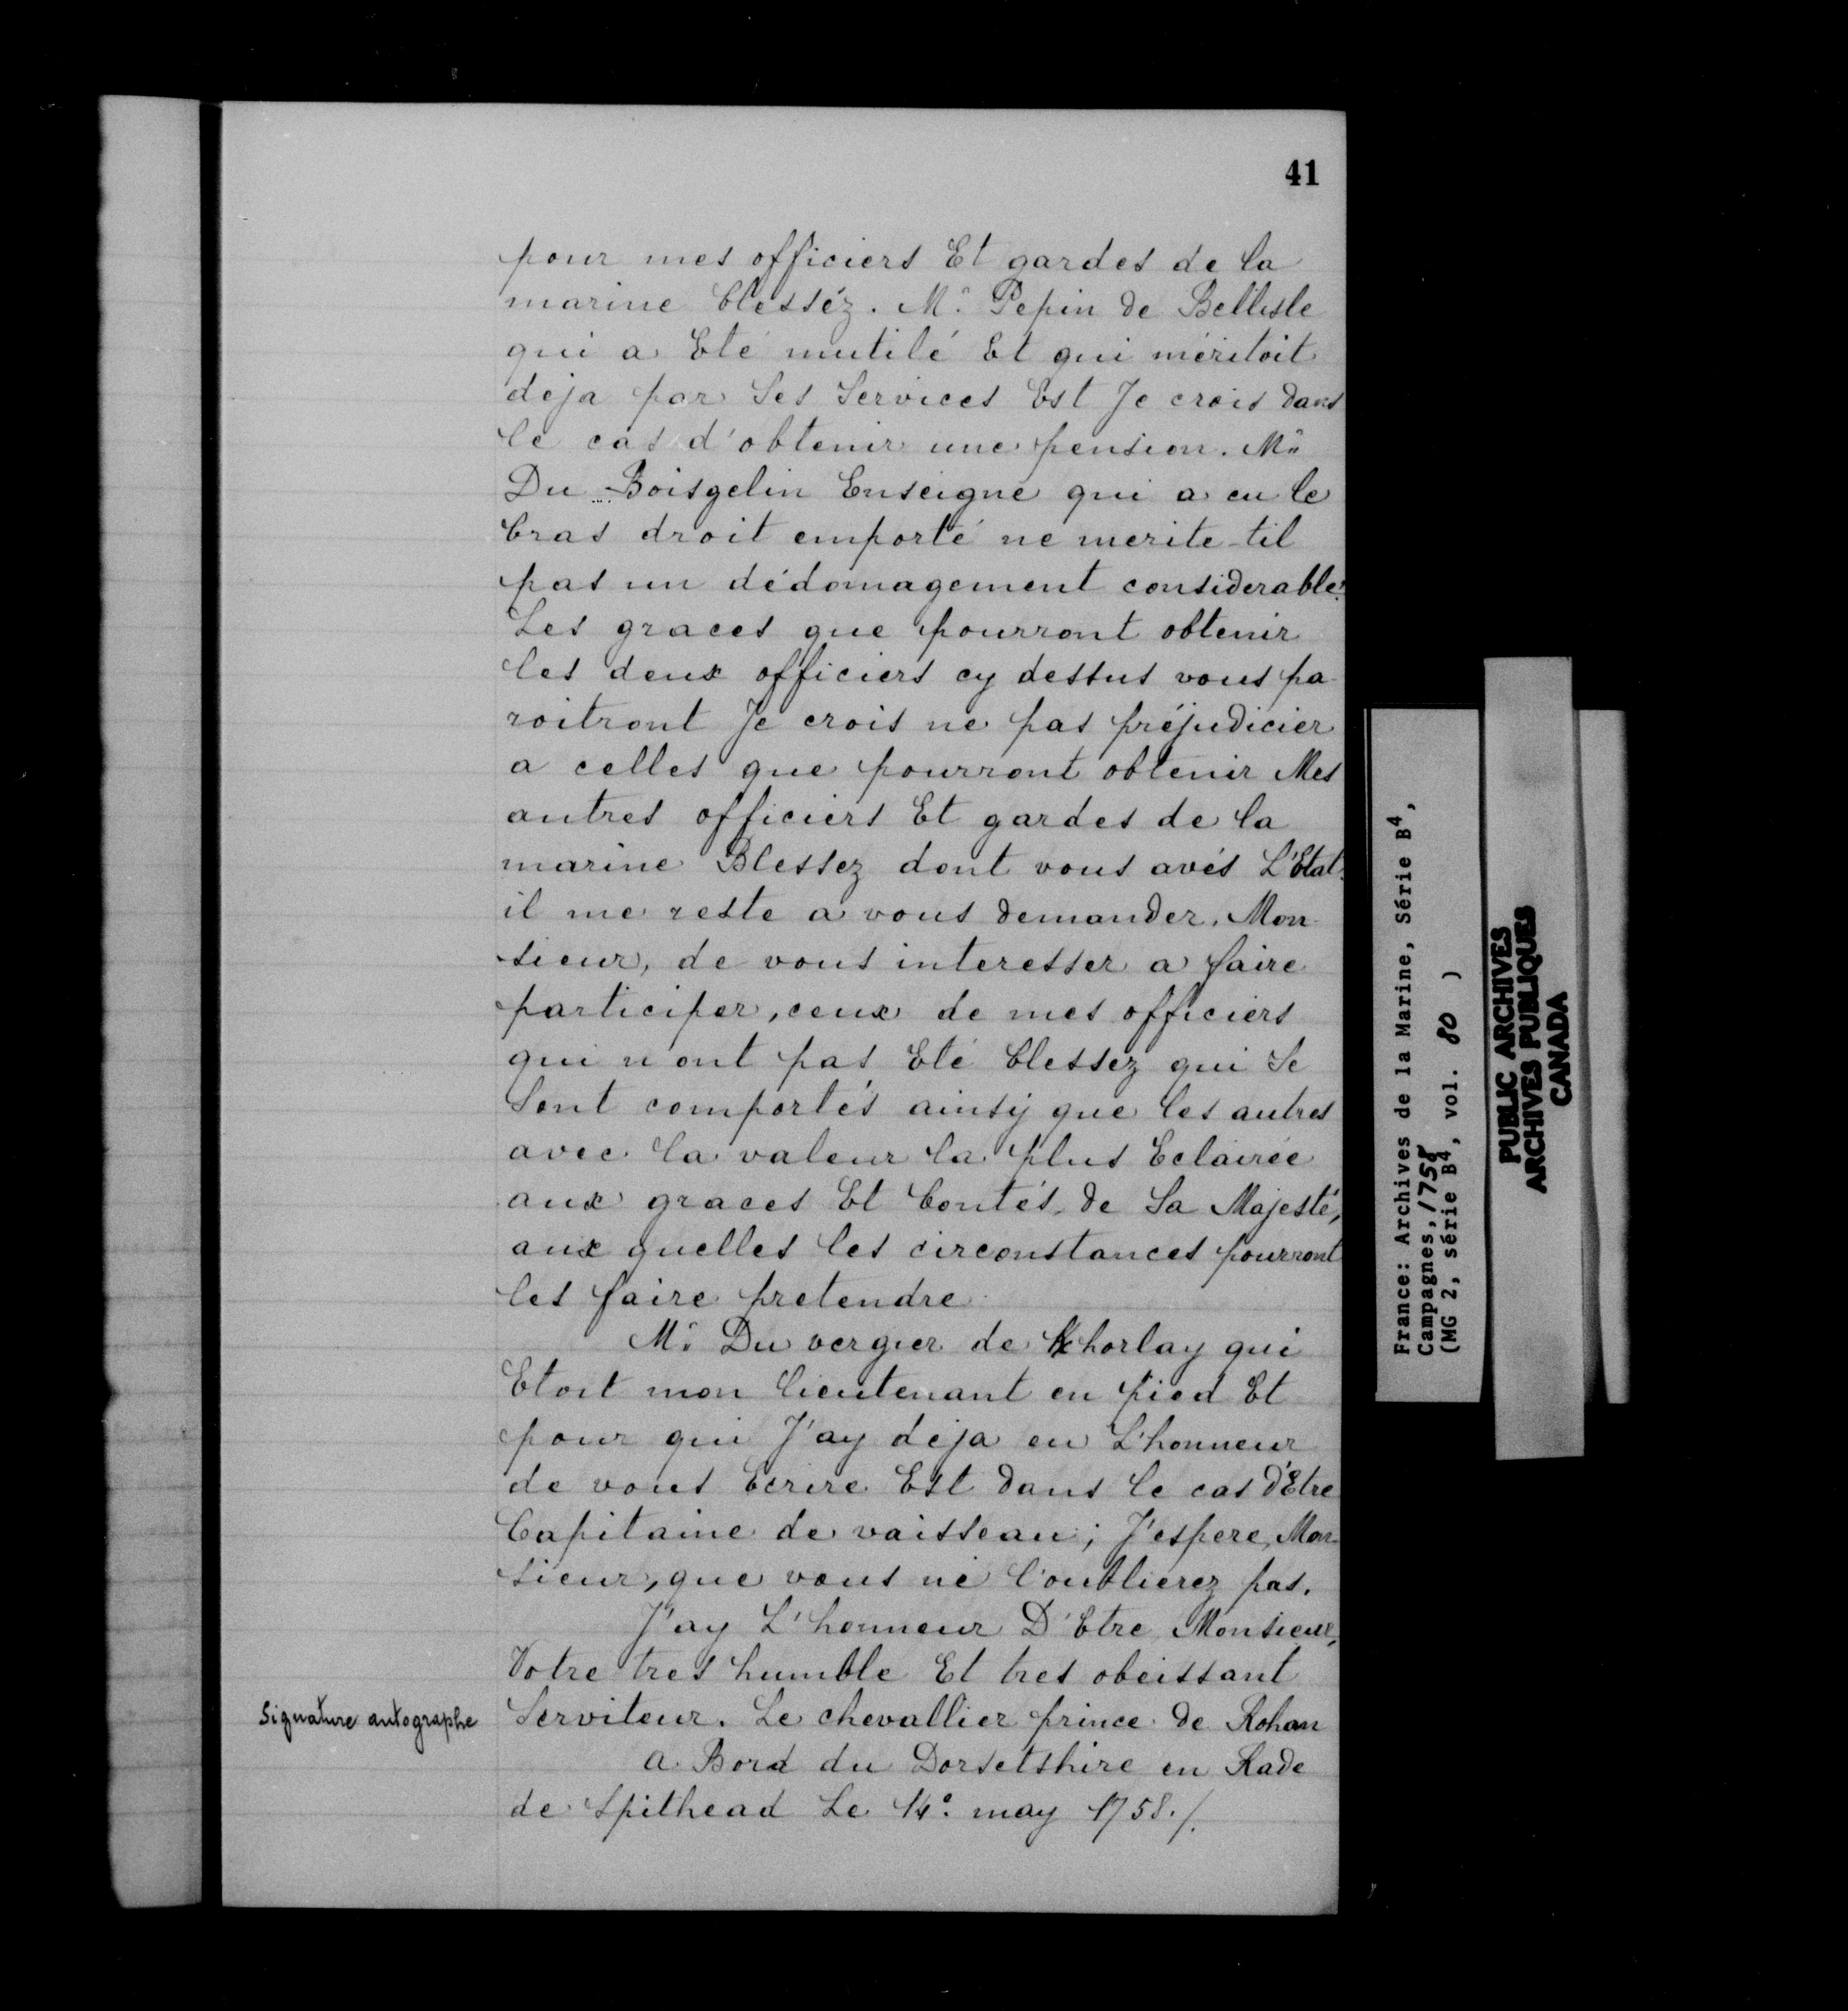 41
pour mes officiers Et gardes de la
marine blesséz. Mr Pepin de Bellisle
qui a Eté mutilé Et qui méritoit
deja par Ses Services Est Je crois dans
le cas d'obtenir une pension. Mr
Du Boisgelin Enseigne qui a eu le
bras droit emporté ne merite-til
pas un dédomagement considerable?
Les graces que pourront obtenir
les deux officiers cy dessus vous pa-
roitront Je crois ne pas préjudicier
a celles que pourront obtenir Mes
autres officiers Et gardes de la
marine Blessez dont vous avés L'Etat.
il me reste a vous demander, Mon-
sieur, de vous interesser a faire
participer, ceux de mes officiers
qui n'ont pas Eté blessez qui Se
Sont comportés ainsy que les autres
avec la valeur la plus Eclairée
aux graces Et bontés de Sa Majesté,
aux quelles les circonstances pourront
les faire pretendre.
Mr Du vergier de horlay qui
Etoit mon lieutenant en pied Et
pour qui J'ay deja eu L'honneur
de vous Ecrire Est dans le cas d'Etre
Capitaine de vaisseau; J'espere, Mon-
sieur, que vous ne l'oublierez pas.
J'ay L'honneur D'Etre Monsieur,
Votre tres humble Et tres obeissant
Signature autographe Serviteur. Le chevallier prince de Rohan
a Bord du Dorsetshire en Rade
de Spithead Le 14º may 1758./.
France: Archives de la Marine, Série B4,
Campagnes, 1758
(MG 2, série B4, vol. 80 )
PUBLIC ARCHIVES
ARCHIVES PUBLIQUES
CANADA